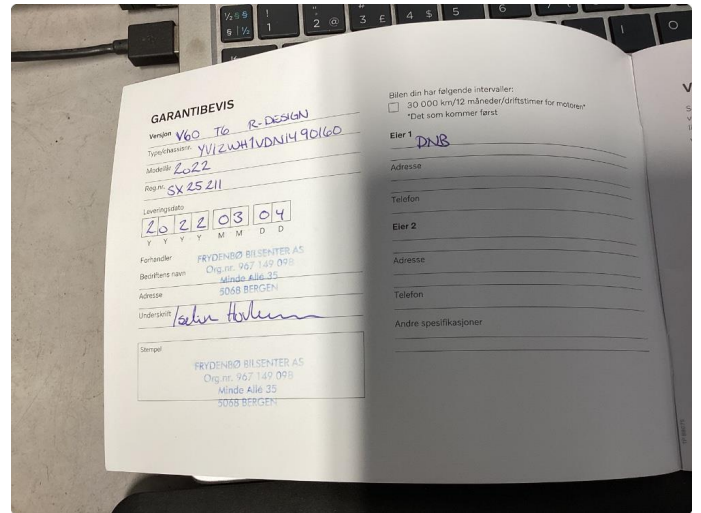 GARANTIBEVIS
Versjon V60 T6 R-DESIGN
Type/chassisnr. YV1ZWH1VDN1490160
Modellår 2022
Reg.nr. SX 25211
Leveringsdato
2022 03 04
Y Y Y Y M M D D
Forhandler
FRYDENBØ BILSENTER AS
Org.nr. 967 149 098
Bedriftens navn
Minde Allé 35
Adresse
5068 BERGEN
Underskrift
Stempel
FRYDENBØ BILSENTER AS
Org.nr. 967 149 098
Minde Allé 35
5068 BERGEN
Bilen din har følgende intervaller:
30 000 km/12 måneder/driftstimer for motoren*
*Det som kommer først
Eier 1 DNB
Adresse
Telefon
Eier 2
Adresse
Telefon
Andre spesifikasjoner
½ § ! " 2 @ 3 £ 4 $ 5 6
1
I O
V